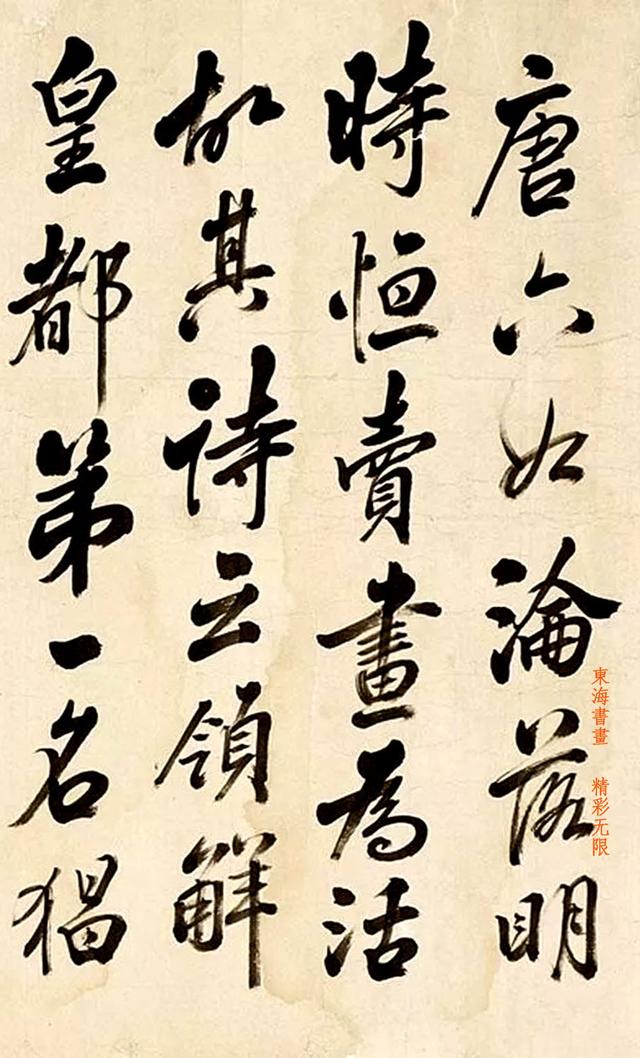 唐六如淪落明
時恒賣畫為活
故其詩云領解
皇都第一名猖
東海書畫 精彩无限